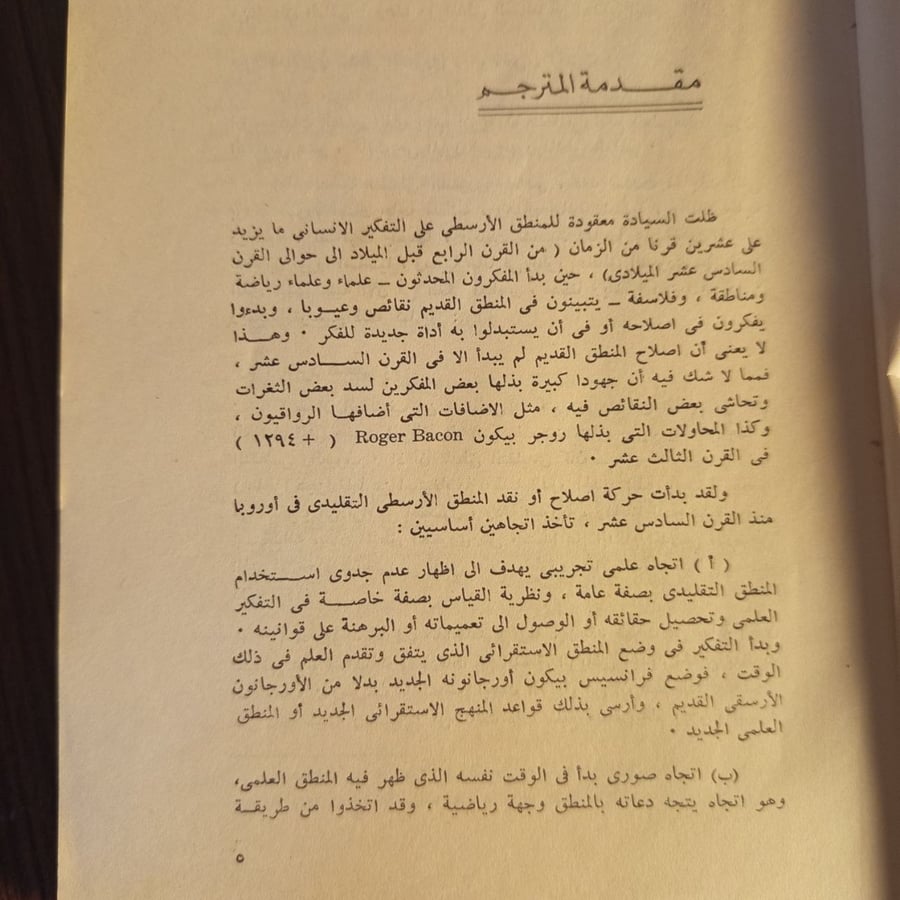 مقدمة المترجم
ظلت السيادة معقودة للمنطق الأرسطى على التفكير الانسانى ما يزيد
على عشرين قرنا من الزمان ( من القرن الرابع قبل الميلاد الى حوالى القرن
السادس عشر الميلادى) ، حين بدأ المفكرون المحدثون ــ علماء وعلماء رياضة
ومناطقة ، وفلاسفة ــ يتبينون فى المنطق القديم نقائص وعيوبا ، وبدءوا
يفكرون فى اصلاحه أو فى أن يستبدلوا به أداة جديدة للفكر ٠ وهذا
لا يعنى أن اصلاح المنطق القديم لم يبدأ الا فى القرن السادس عشر ،
فمما لا شك فيه أن جهودا كبيرة بذلها بعض المفكرين لسد بعض الثغرات
وتحاشى بعض النقائص فيه ، مثل الاضافات التى أضافها الرواقيون ،
وكذا المحاولات التى بذلها روجر بيكون Roger Bacon ( + ١٢٩٤ )
فى القرن الثالث عشر ٠
ولقد بدأت حركة اصلاح أو نقد المنطق الأرسطى التقليدى فى أوروبا
منذ القرن السادس عشر ، تأخذ اتجاهين أساسيين :
( أ ) اتجاه علمى تجريبى يهدف الى اظهار عدم جدوى استخدام
المنطق التقليدى بصفة عامة ، ونظرية القياس بصفة خاصة فى التفكير
العلمى وتحصيل حقائقه أو الوصول الى تعميماته أو البرهنة على قوانينه ٠
وبدأ التفكير فى وضع المنطق الاستقرائى الذى يتفق وتقدم العلم فى ذلك
الوقت ، فوضع فرانسيس بيكون أورجانونه الجديد بدلا من الأورجانون
الأرسقى القديم ، وأرسى بذلك قواعد المنهج الاستقرائى الجديد أو المنطق
العلمى الجديد ٠
(ب) اتجاه صورى بدأ فى الوقت نفسه الذى ظهر فيه المنطق العلمى،
وهو اتجاه يتجه دعاته بالمنطق وجهة رياضية ، وقد اتخذوا من طريقة
٥